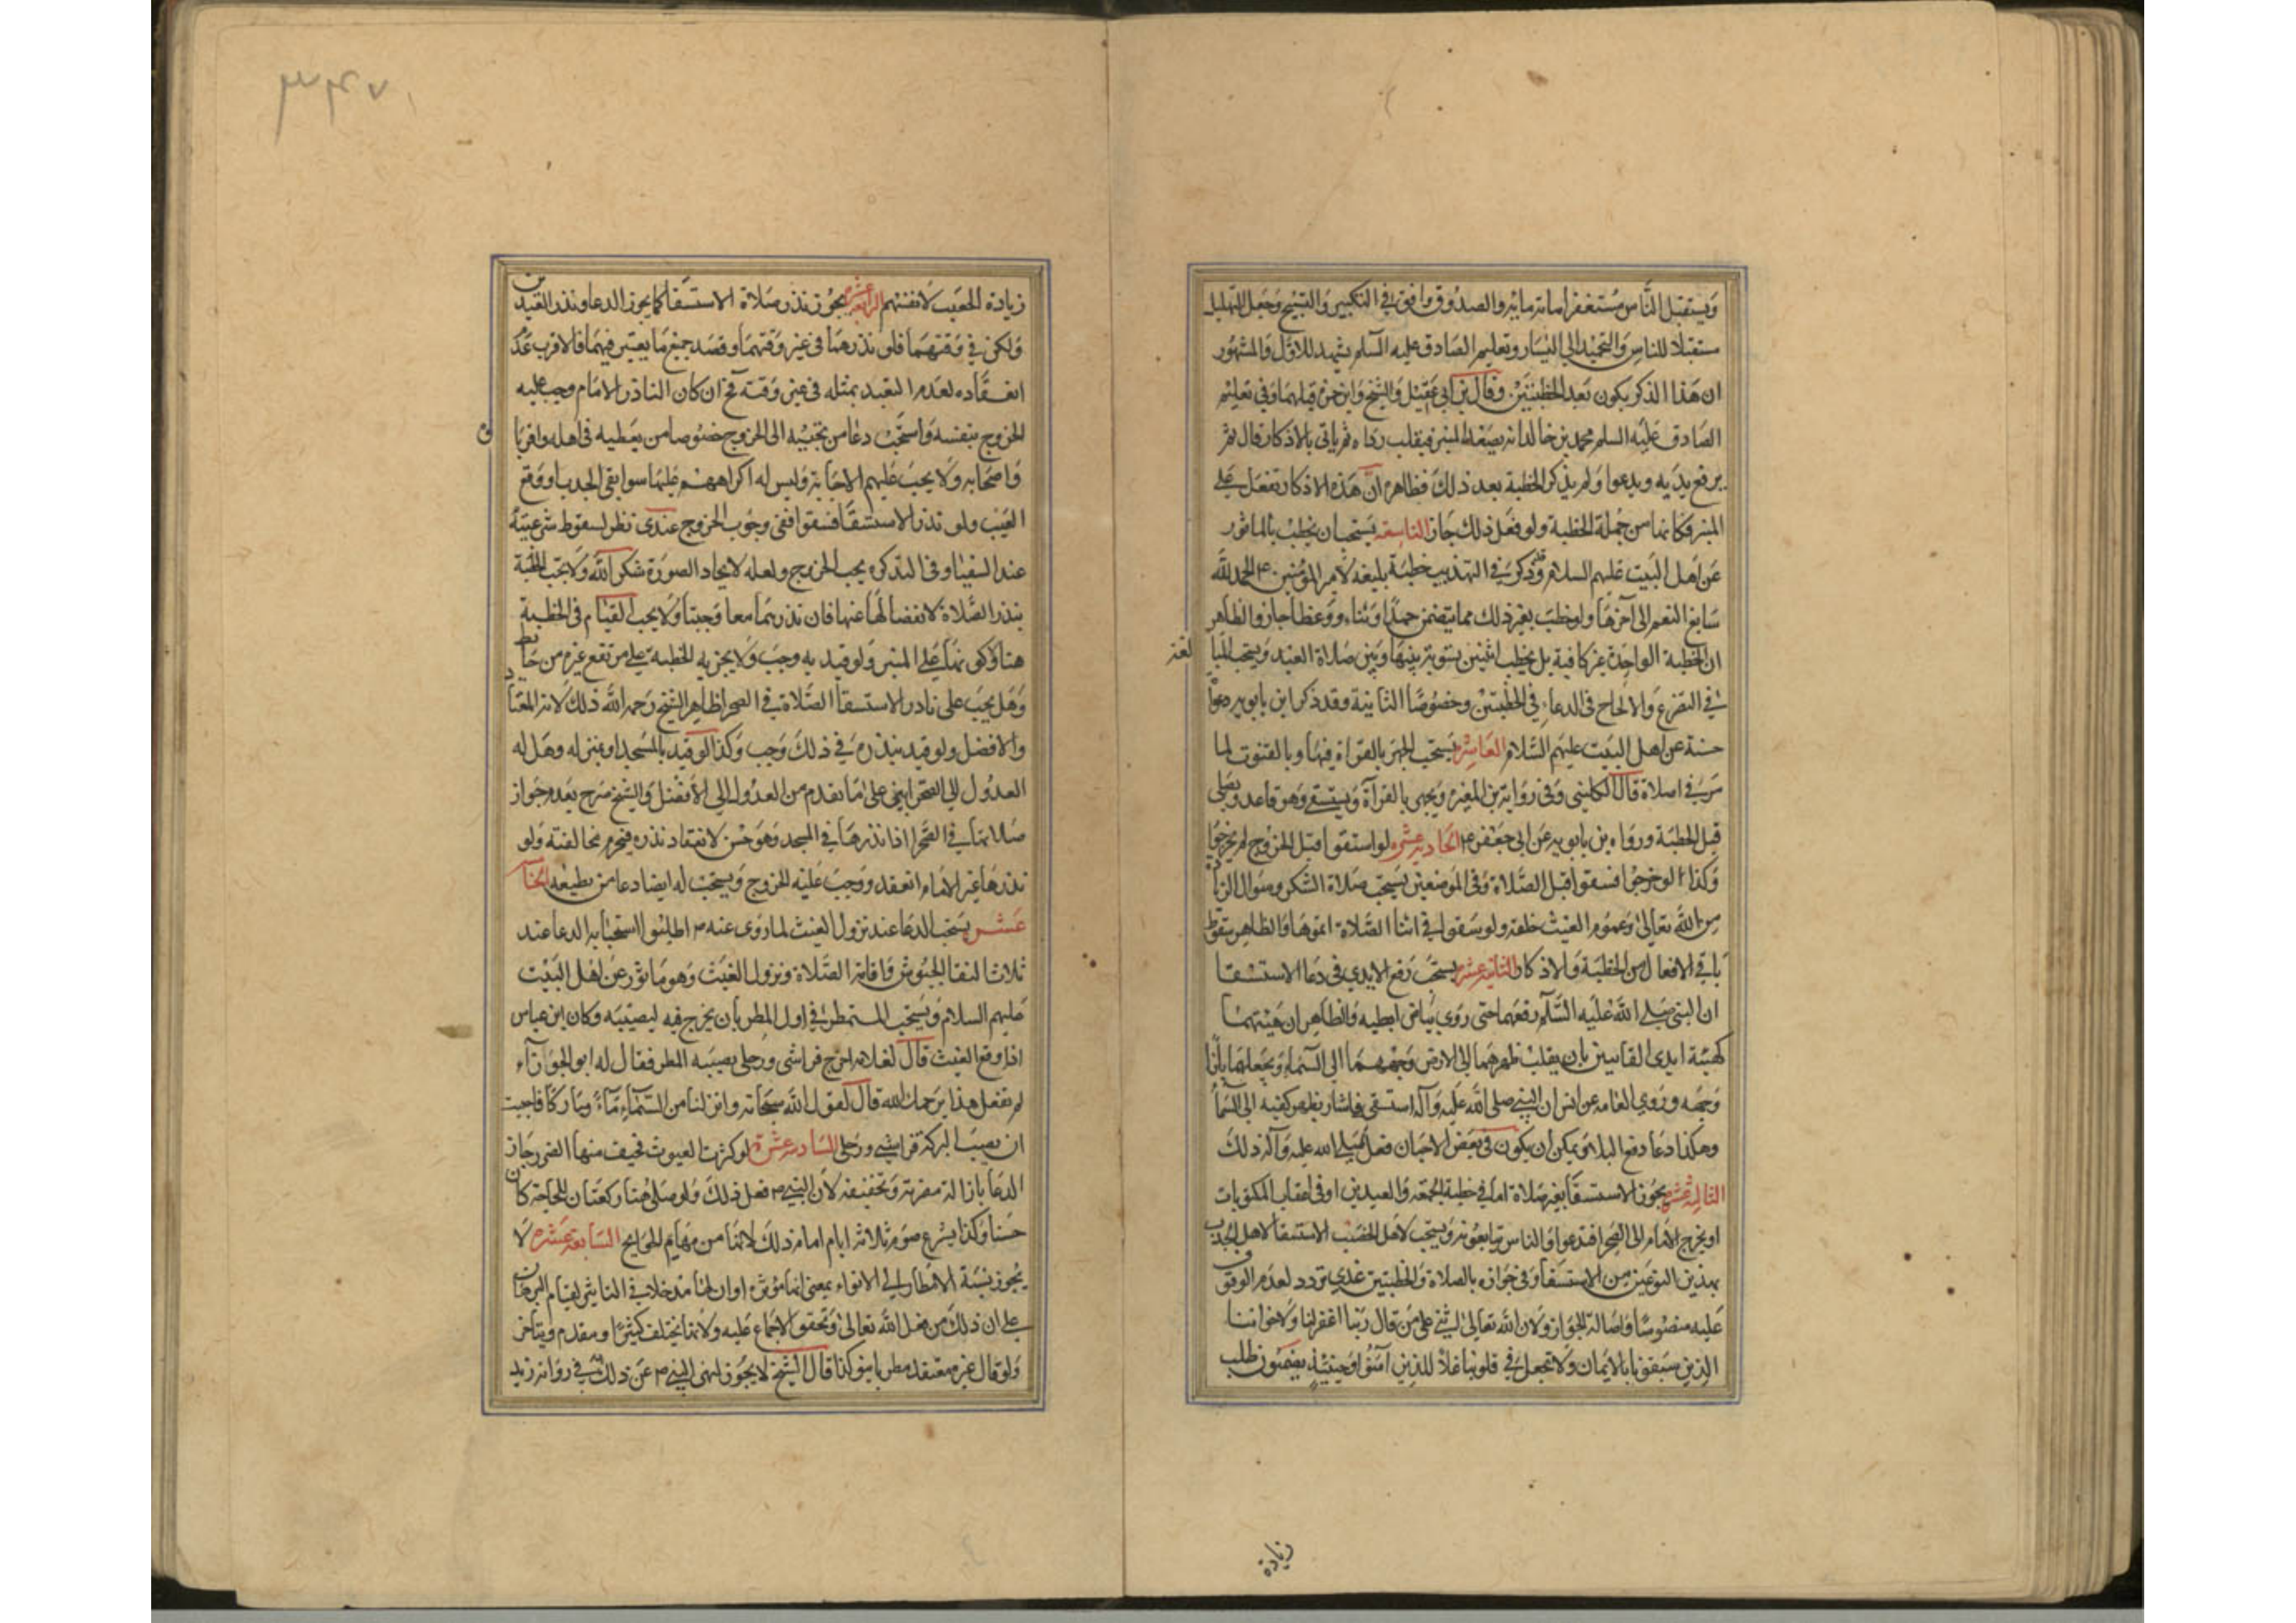 ويستقبل الناس مستغفرا مائة مرة والصدوق وافق في التكبير والتسبيح وجعل التهليل
مستقبلا للناس والتحميد الى اليسار وتعليم الصادق عليه السلم يشهد للاول والمشهور
ان هذا الذكر يكون بعد الخطبتين وقال بن ابي عقيل والشيخ وابن حمزة قبلهما وفي تعليم
الصادق عليه السلم محمد بن خالد انه يصعد المنبر فيقلب رداه ثم ياتي بالاذكار قال ثم
يرفع يديه ويدعوا ولم يذكر الخطبة بعد ذلك فظاهره ان هذه الاذكار تفعل على
المنبر فكانها من جملة الخطبة ولو فعل ذلك جاز التاسعة يستحب ان يخطب بالماثور
عن اهل البيت عليهم السلام وقد ذكر في التهذيب خطبة بليغة لامير المؤمنين ع الحمد لله
سابغ النعم الى آخرها ولو خطب بغير ذلك مما يتضمن حمدا وثناء ووعظا جاز والظاهر
ان الخطبة الواحدة غير كافية بل يخطب اثنتين تسوية بينها وبين صلاة العيد ويستحب المبا لغة
في التضرع والالحاح في الدعاء في الخطبتين وخصوصا الثانية وقد ذكر ابن بابويه دعوات
حسنة عن اهل البيت عليهم السلام العاشرة يستحب الجهر بالقراة فيها وبالقنوت لما
مر في اصلاة قال الكليني وفي رواية بن المغيرة ويجهر بالقراة ويستسقي وهو قاعد ويصلي
قبل الخطبة ورواه بن بابويه عن ابي جعفر ع الحادية عشرة لو استسقوا قبل الخروج لم يخرجوا
وكذا لو خرجوا فسقوا قبل الصلاة وفي الموضعين يستحب صلاة الشكر وسوال الزيادة
من الله تعالى وعموم الغيث خلقه ولو سقوا في اثنا الصلاة اتموها والظاهر سقوط
باقي الافعال من الخطبة والاذكار الثانية عشرة يستحب رفع الايدي في دعا الاستسقا
ان النبي صلى الله عليه السلم رفعهما حتى روي بياض ابطيه والظاهر ان هيئتهما
كهيئة ايدي القانتين بان يقلب ظهرهما الى الارض وجههما الى السماء ويجعلهما بازا
وجهه وروي العامه عن انس ان النبي صلى الله عليه وآله استسقى فاشار بظهر كفيه الى السما
وهكذا دعا دفع البلا ويمكن ان يكون في بعض الاحيان فعل النبي صلى الله عليه وآله ذلك
الثالثة عشرة يجوز الاستسقا بغير صلاة اما في خطبة الجمعة والعيدين او في اعقاب المكتوبات
او يخرج الامام الى الصحرا فيدعوا والناس يتابعونه ويستحب لاهل الخصب الاستسقا لاهل الجدب
بهذين النوعين من الاستسقا وفي جوازه بالصلاة والخطبتين عندي تردد لعدم الوقوف
عليه منصوصا واصالة الجواز ولان الله تعالى اثنى على من قال ربنا اغفر لنا ولاخواننا
الذين سبقونا بالايمان ولا تجعل في قلوبنا غلا للذين آمنوا وحينئذ يضمون طلب
زيادة
٣٤٧
زيادة الخصب لانفسهم الرابعة عشرة يجوز نذر صلاة الاستسقا كما يجوز الدعا ونذر العيدين
ولكن في وقتهما فلو نذرهما في غير وقتهما وقصد جميع ما يعتبر فيهما فالاقرب عدم
انعقاده لعدم التعبد بمثله في غير وقته ثم ان كان الناذر الامام وجب عليه
الخروج بنفسه واستحب دعا من يجيبه الى الخروج خصوصا من يطيعه في اهله واقربا
واصحابه ولا يجب عليهم الاجابة وليس له اكراههم عليها سوا بقي الجدب او وقع
الغيث ولو نذر الاستسقا فسقوا ففي وجوب الخروج عندي نظر لسقوط شرعيته
عند السقيا وفي التذكرة يجب الخروج ولعله لايجاد الصورة شكر الله ولا تجب الخطبة
بنذر الصلاة لانفصالها عنها فان نذرهما معا وجبتا ولا يجب القيام في الخطبة
هنا وكونها على المنبر ولو قيد به وجب ولا يجزيه الخطبة على مرتفع غيره من حايط
وهل يجب على ناذر الاستسقا الصلاة في الصحرا ظاهر الشيخ رحمه الله ذلك لانه المعتاد
والافضل ولو قيد بنذره في ذلك وجب وكذا لو قيد بالمسجد او بمنزله وهل له
العدول الى الصحرا يبنى على ما تقدم من العدول الى الافضل والشيخ صرح بعدم جواز
صلاتها في الصحرا اذا نذرها في المسجد وهو حسن لانعقاد نذره فيحرم مخالفته ولو
نذرها غير الامام انعقد ووجب عليه الخروج ويستحب له ايضا دعا من يطيعه الخامسة
عشرة يستحب الدعا عند نزول الغيث لما روى عنه ص اطلبوا استجابه الدعا عند
ثلاث التقا الجيوش واقامة الصلاة ونزول الغيث وهو ماثور عن اهل البيت
عليهم السلام ويستحب المستمطر في اول المطر بان يخرج فيه ليصيبه وكان ابن عباس
اذا وقع الغيث قال لغلامه اخرج فراشي ورحلي يصيبه المطر فقال له ابو الجوزاء
لم تفعل هذا يرحمك الله قال لقول الله سبحانه وانزلنا من السماء ماء مباركا فاحببت
ان يصيب البركة فراشي ورحلي السادسة عشرة لو كثرت الغيوث فخيف منها الضرر جاز
الدعا بازالة مضرته وتخفيفه لان النبي ص فعل ذلك ولو صلى هنا ركعتان للحاجة كان
حسنا وكذا يشرع صوم ثلاثة ايام امام ذلك لانها من مهام الحوايج السابعة عشرة لا
يجوز نسبة الامطار الى الانواء بمعنى انها مؤثرة او ان لها مدخلا في التاثير لقيام البرهان
على ان ذلك من فعل الله تعالى وتحقق الاجماع عليه ولانها تختلف كثيرا وتقدم ويتاخر
ولو قال غير معتقد مطرنا بنوكذا قال الشيخ لا يجوز لنهي النبي ص عن ذلك في رواية زيد